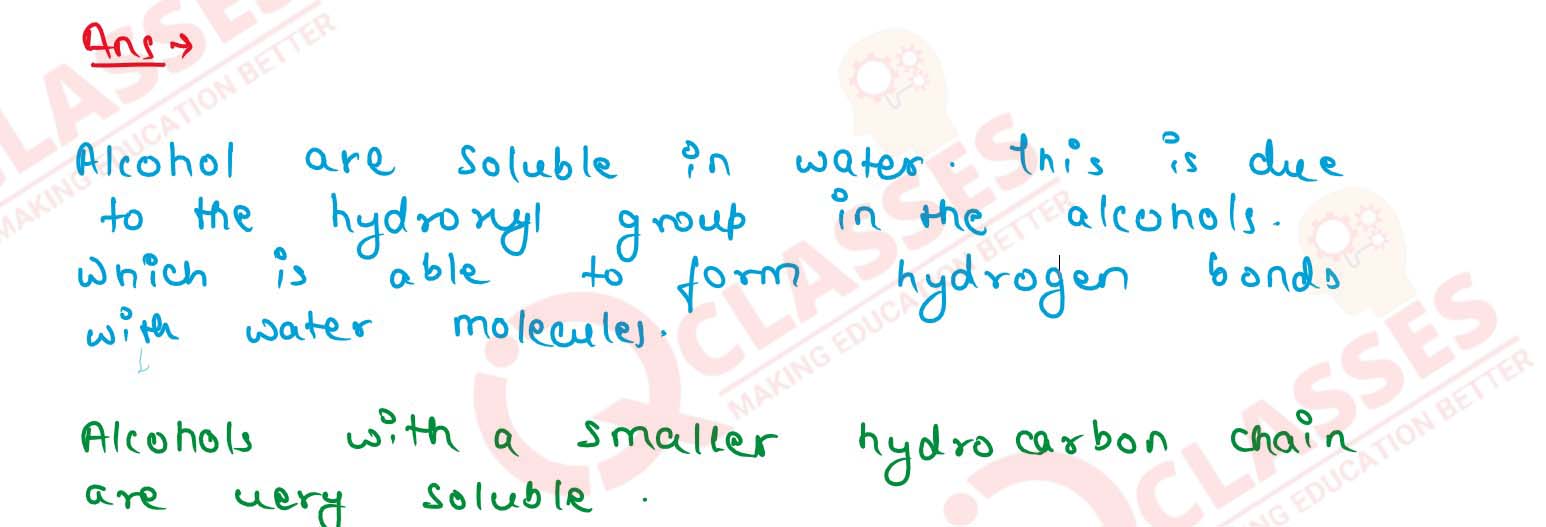 Ans →
Alcohol are soluble in water. This is due
to the hydroxyl group in the alcohols.
Which is able to form hydrogen bonds
with water molecules.
Alcohols with a smaller hydrocarbon chain
are very soluble.
CLASSES
MAKING EDUCATION BETTER
CLASSES
MAKING EDUCATION BETTER
CLASSES
MAKING EDUCATION BETTER